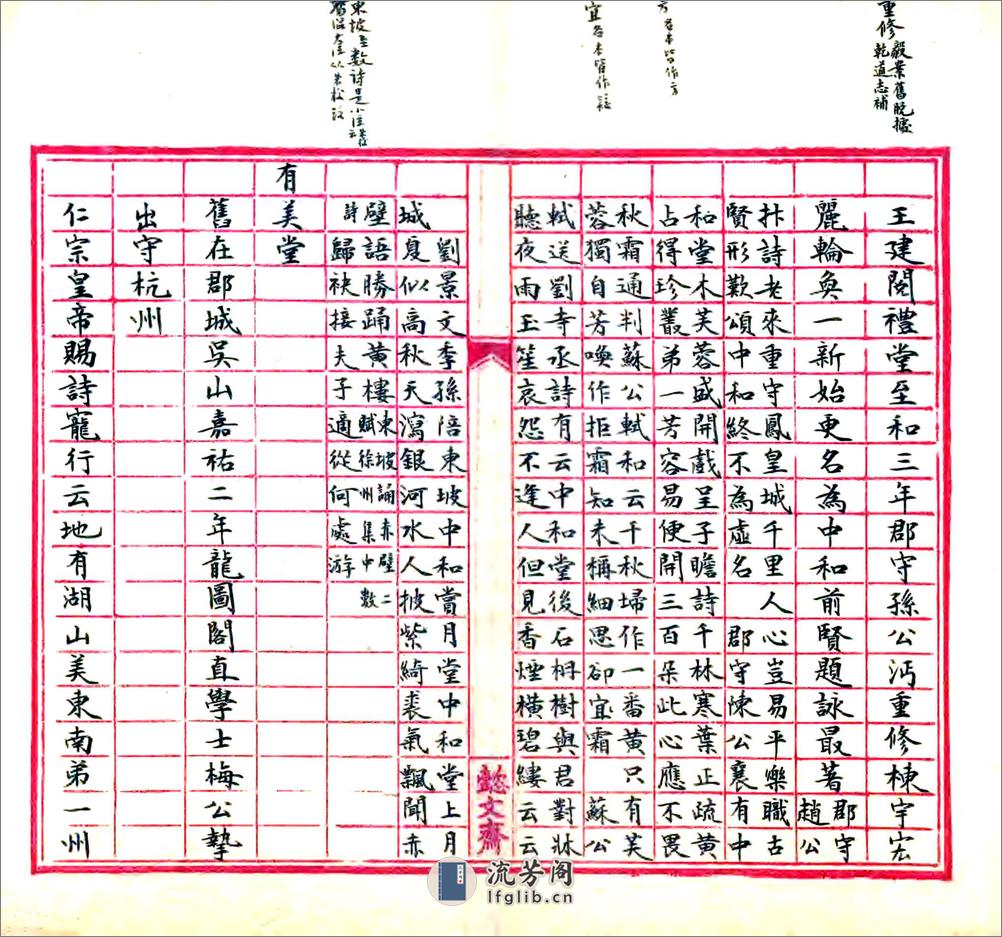 重修
毅業舊脫據
乾道志補
方各本皆作方
宜各本皆作
東坡至數詩是小注
王建閱禮堂至和三年郡守孫公沔重修棟宇宏
麗輪奐一新始更名為中和前賢題詠最著郡守
趙公
抃詩老來重守鳳皇城千里人心豈易平樂職古
賢形歎頌中和終不為虛名郡守陳公襄有中
和堂木芙蓉盛開戲呈子瞻詩千林寒葉正疏黃
占得珍叢弟一芳容易便開三百朵此心應不畏
秋霜通判蘇公軾和云千秋埽作一番黃只有芙
蓉獨自芳喚作拒霜知未稱細思卻宜霜蘇公
軾送劉寺丞詩有云中和堂後石楠樹與君對牀
聽夜雨玉笙哀怨不逢人但見香煙橫碧縷云云
懿文齋
劉景文季孫陪東坡中和賞月堂中和堂上月
城夏似高秋天瀉銀河水人披紫綺裘氣飄聞赤
壁語勝踊黃樓東坡誦赤壁二
賦徐州集中數
詩歸袂接夫子適從何處游
有美堂
舊在郡城吳山嘉祐二年龍圖閣直學士梅公摯
出守杭州
仁宗皇帝賜詩寵行云地有湖山美東南弟一州
流芳阁
lfglib.cn